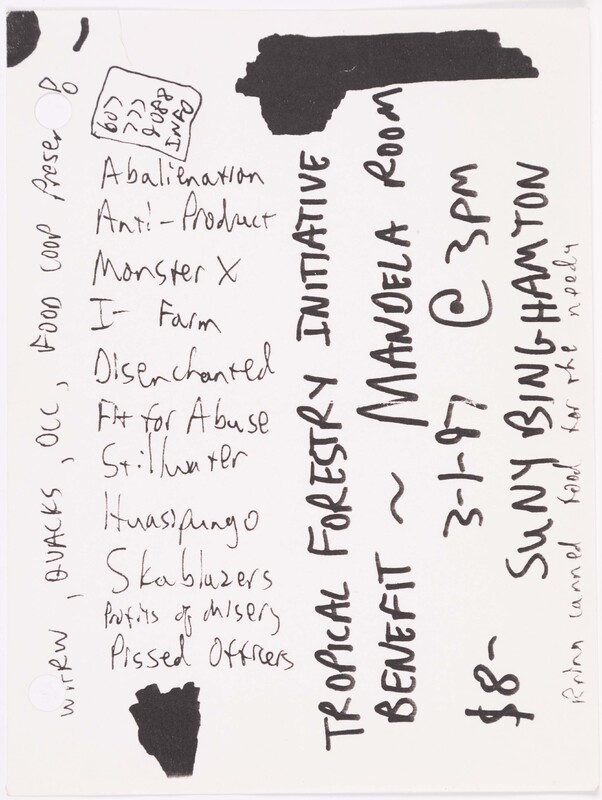 WHRW, QUACKS, OCC, FOOD COOP
607
777
INFO
Abalienation
Anti-Product
Monster X
I- Farm
Disenchanted
Fit for Abuse
Stillwater
Huasipungo
Skablazers
Profits of Misery
Pissed Officers
TROPICAL FORESTRY INITIATIVE
BENEFIT ~ MANDELA ROOM
3-1-97 @ 3PM
$8- SUNY BINGHAMTON
Bring canned food for the needy